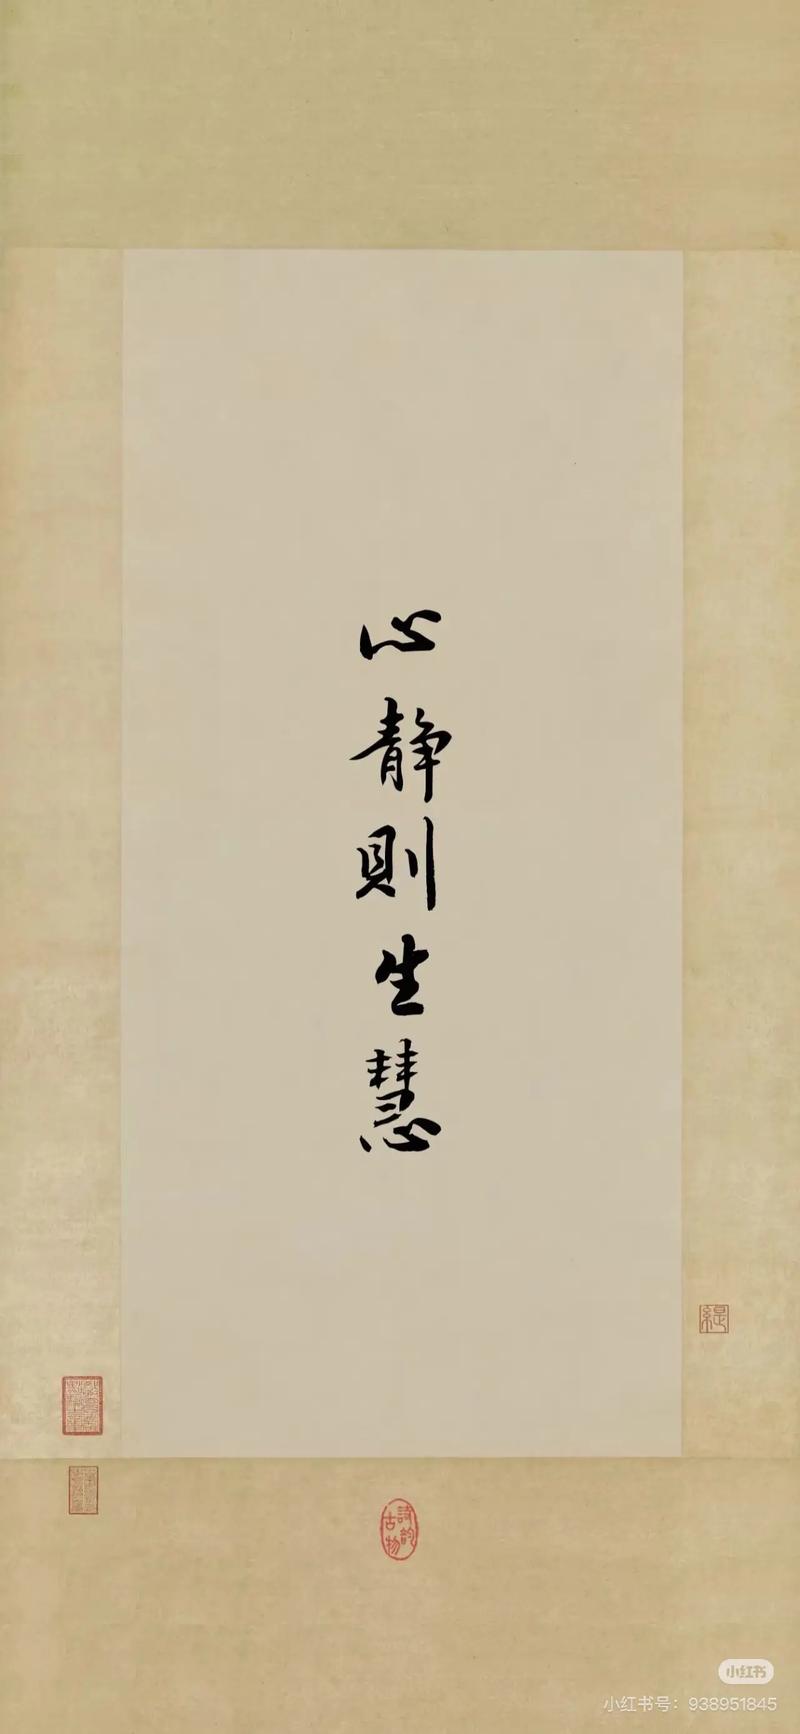 心静則生慧
緹
詩韵
古物
小红书
小红书号：938951845